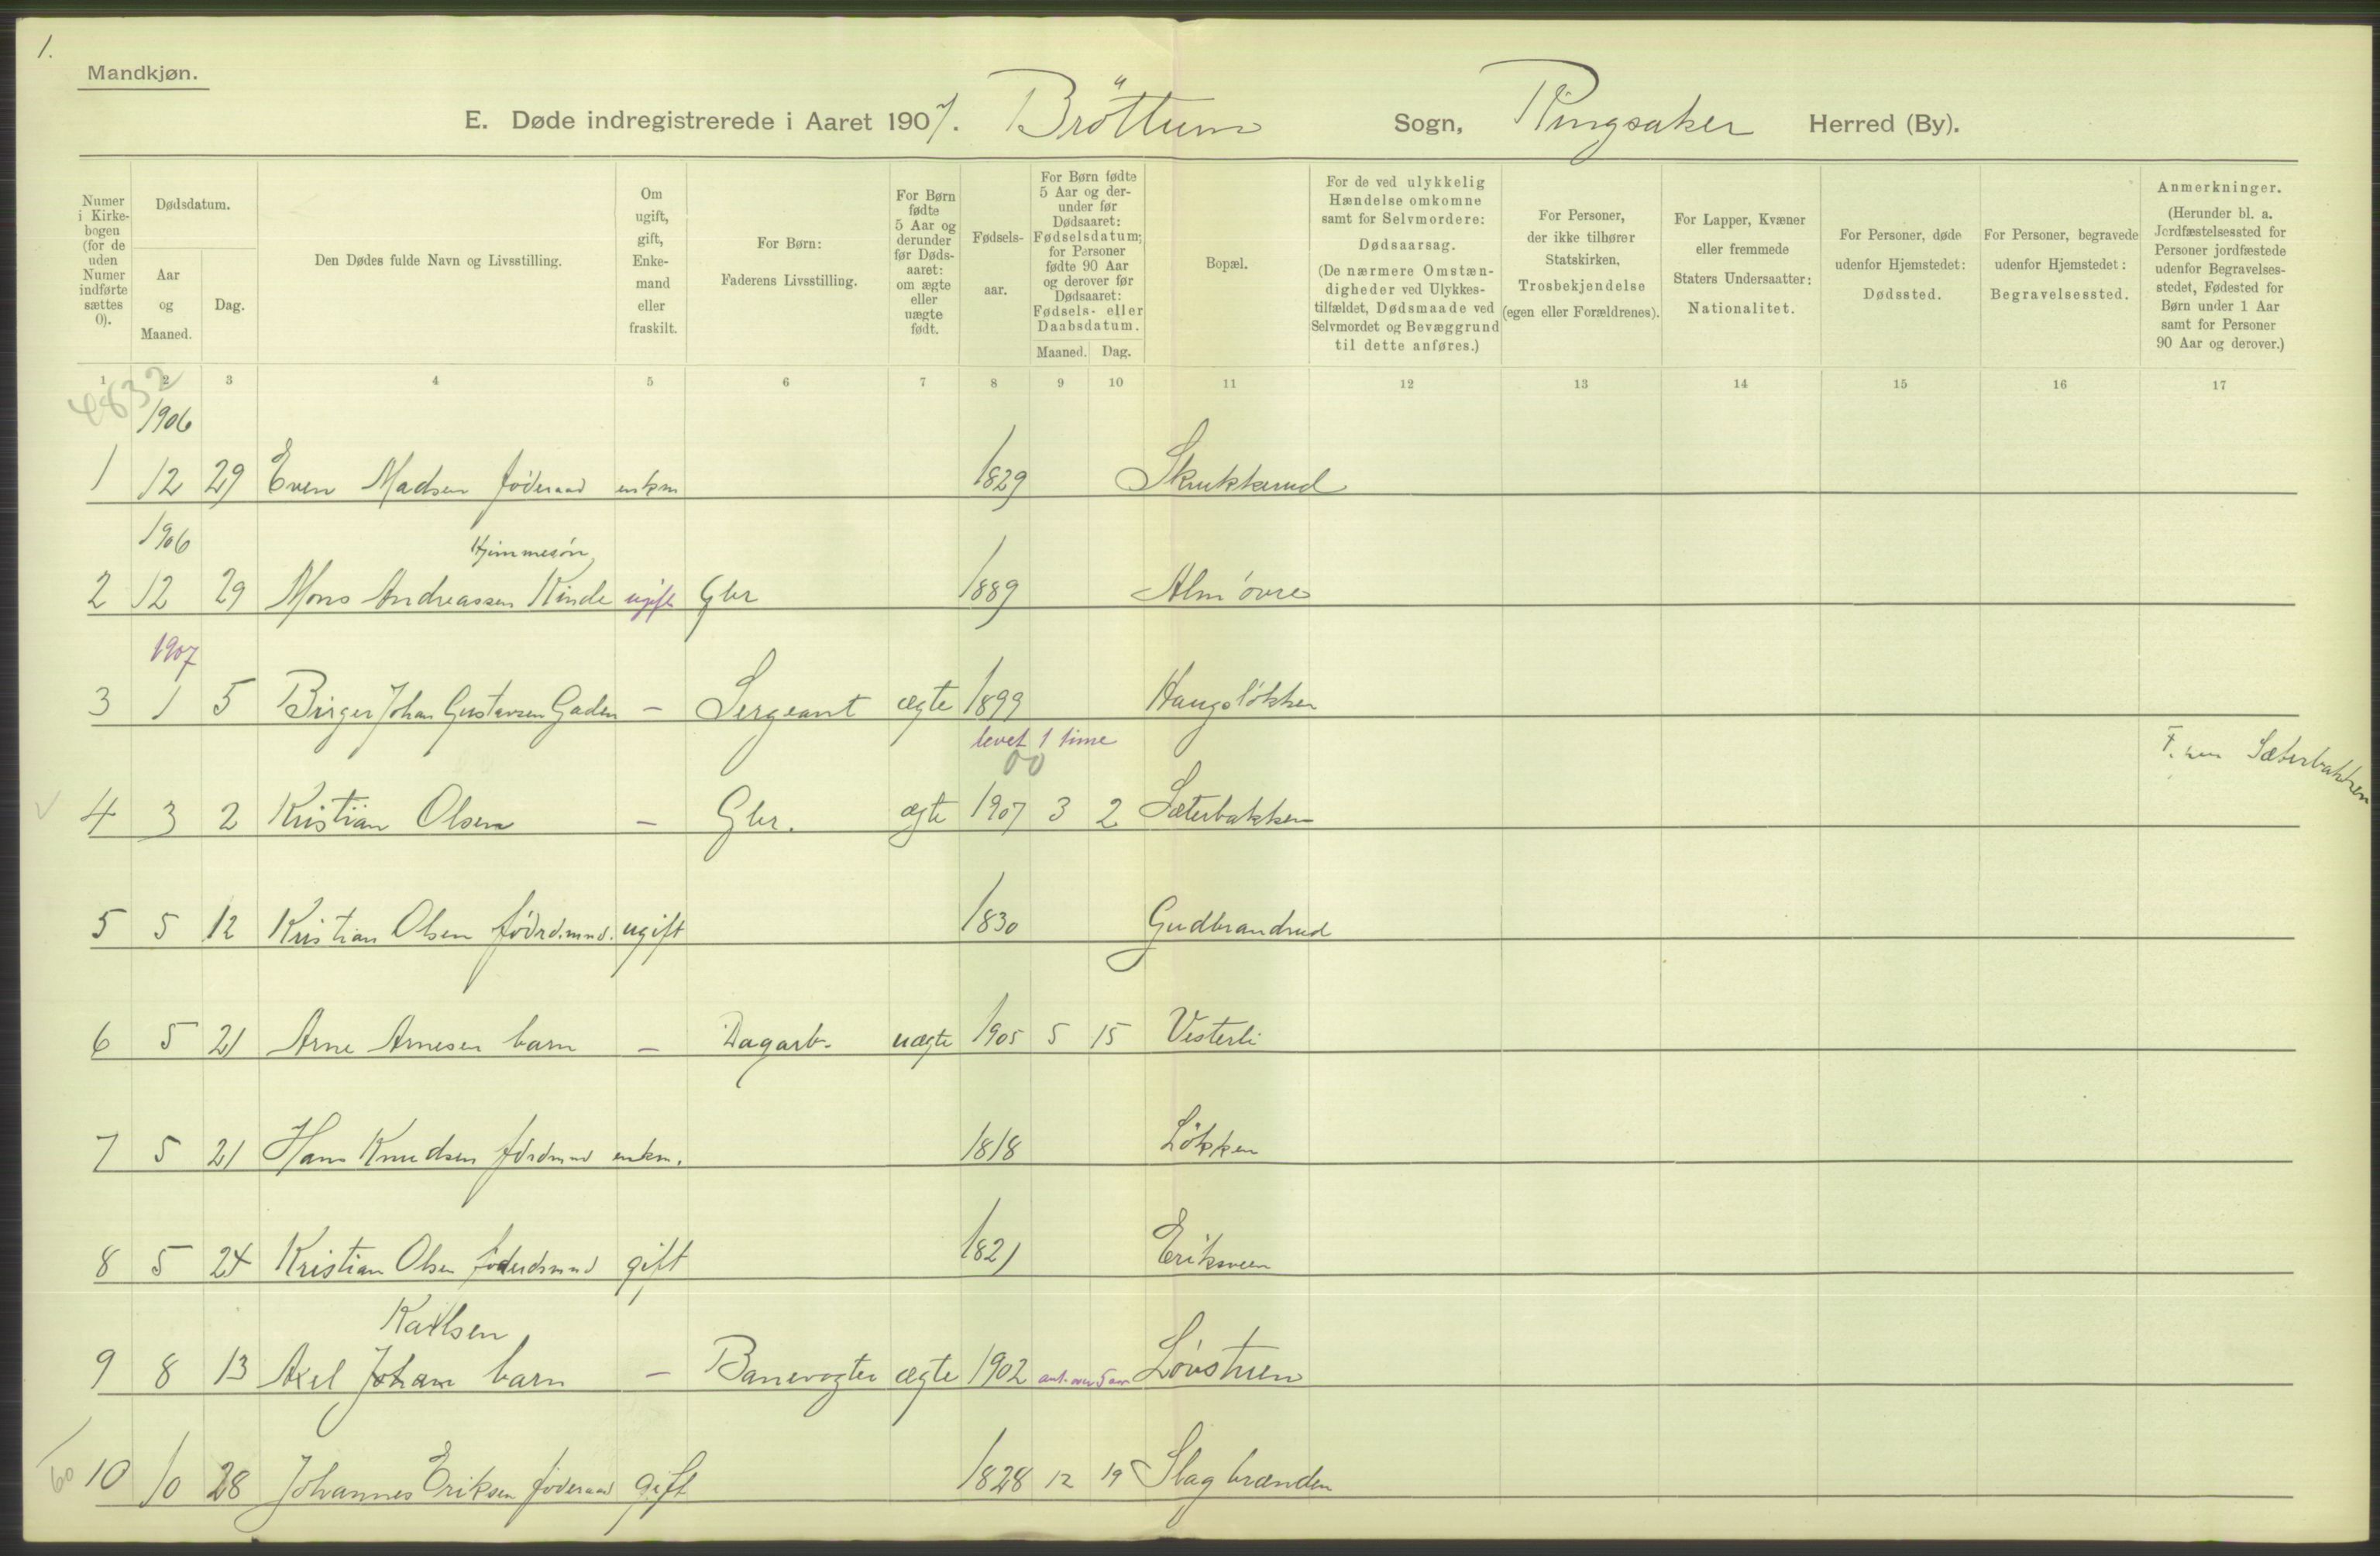 1.
Mandkjøn.
E. Døde indregistrerede i Aaret 1907. Bröttum Sogn, Ringsaker Herred (By).
Numer i Kirke-bogen (for de uden Numer indførte sættes 0).
Dødsdatum.
Aar og Maaned.
Dag.
Den Dødes fulde Navn og Livsstilling.
Om ugift, gift, Enke-mand eller fraskilt.
For Børn: Faderens Livsstilling.
For Børn fødte 5 Aar og derunder før Døds-aaret: om ægte eller uægte født.
Fødsels-aar.
For Børn fødte 5 Aar og der-under før Dødsaaret: Fødselsdatum; for Personer fødte 90 Aar og derover før Dødsaaret: Fødsels- eller Daabsdatum.
Maaned. Dag.
Bopæl.
For de ved ulykkelig Hændelse omkomne samt for Selvmordere: Dødsaarsag. (De nærmere Omstæn-digheder ved Ulykkes-tilfældet, Dødsmaade ved Selvmordet og Bevæggrund til dette anføres.)
For Personer, der ikke tilhører Statskirken, Trosbekjendelse (egen eller Forældrenes).
For Lapper, Kvæner eller fremmede Staters Undersaatter: Nationalitet.
For Personer, døde udenfor Hjemstedet: Dødssted.
For Personer, begravede udenfor Hjemstedet: Begravelsessted.
Anmerkninger. (Herunder bl. a. Jordfæstelsessted for Personer jordfæstede udenfor Begravelses-stedet, Fødested for Børn under 1 Aar samt for Personer 90 Aar og derover.)
1 2 3 4 5 6 7 8 9 10 11 12 13 14 15 16 17
4832
1906
1 12 29 Even Madsen föderaad enkm 1829 Skrukkerud
1906
Hjemmesön,
2 12 29 Mons Andreassen Kinde ugift Gbr 1889 Alm övre
1907
3 1 5 Birger Johan Gustavsen Gaden — Sergeant ægte 1899 Haugslökken
levet 1 time
00
F. Sæterbakken
4 3 2 Kristian Olsen — Gbr. ægte 1907 3 2 Sæterbakken
5 5 12 Kristian Olsen födrd.mnd. ugift 1830 Gudbrandrud
6 5 21 Arne Arnesen barn — Dagarb. uægte 1905 5 15 Vesterli
7 5 21 Hans Knudsen födrdmnd enkm. 1818 Lökken
8 5 24 Kristian Olsen föderdsmnd gift 1821 Eriksveen
Karlsen
9 8 13 Axel Johan barn — Banevogter ægte 1902 ant. over 5 aar Lövstuen
60 10 10 28 Johannes Eriksen föderaad gift 1828 12 19 Slagbrænden